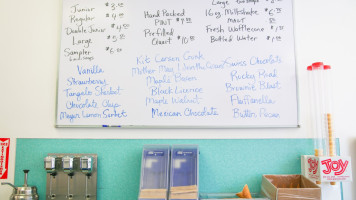 Junior $3.⁰⁰
Regular $4.⁰⁰
Double Junior $4.⁵⁰
Large $5.
Sampler $6.⁰⁰
Hand Packed
PINT $7.⁰⁰
Prefilled
Quart $10.⁰⁰
16 oz Milkshake $6.⁰⁰
MALT
Fresh Waffle cone $1.⁰⁰
Bottled Water $1.⁰⁰
Vanilla
Strawberry
Tangelo Sherbet
Chocolate Chip
Meyer Lemon Sorbet
Kit Carson Crunk
Maple Bacon
Black Licorice
Maple Walnut
Mexican Chocolate
Swiss Chocolate
Rocky Road
Brownie Blast
Button Pecan
JOY
JOY